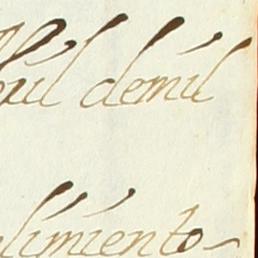 bril demil
limiento